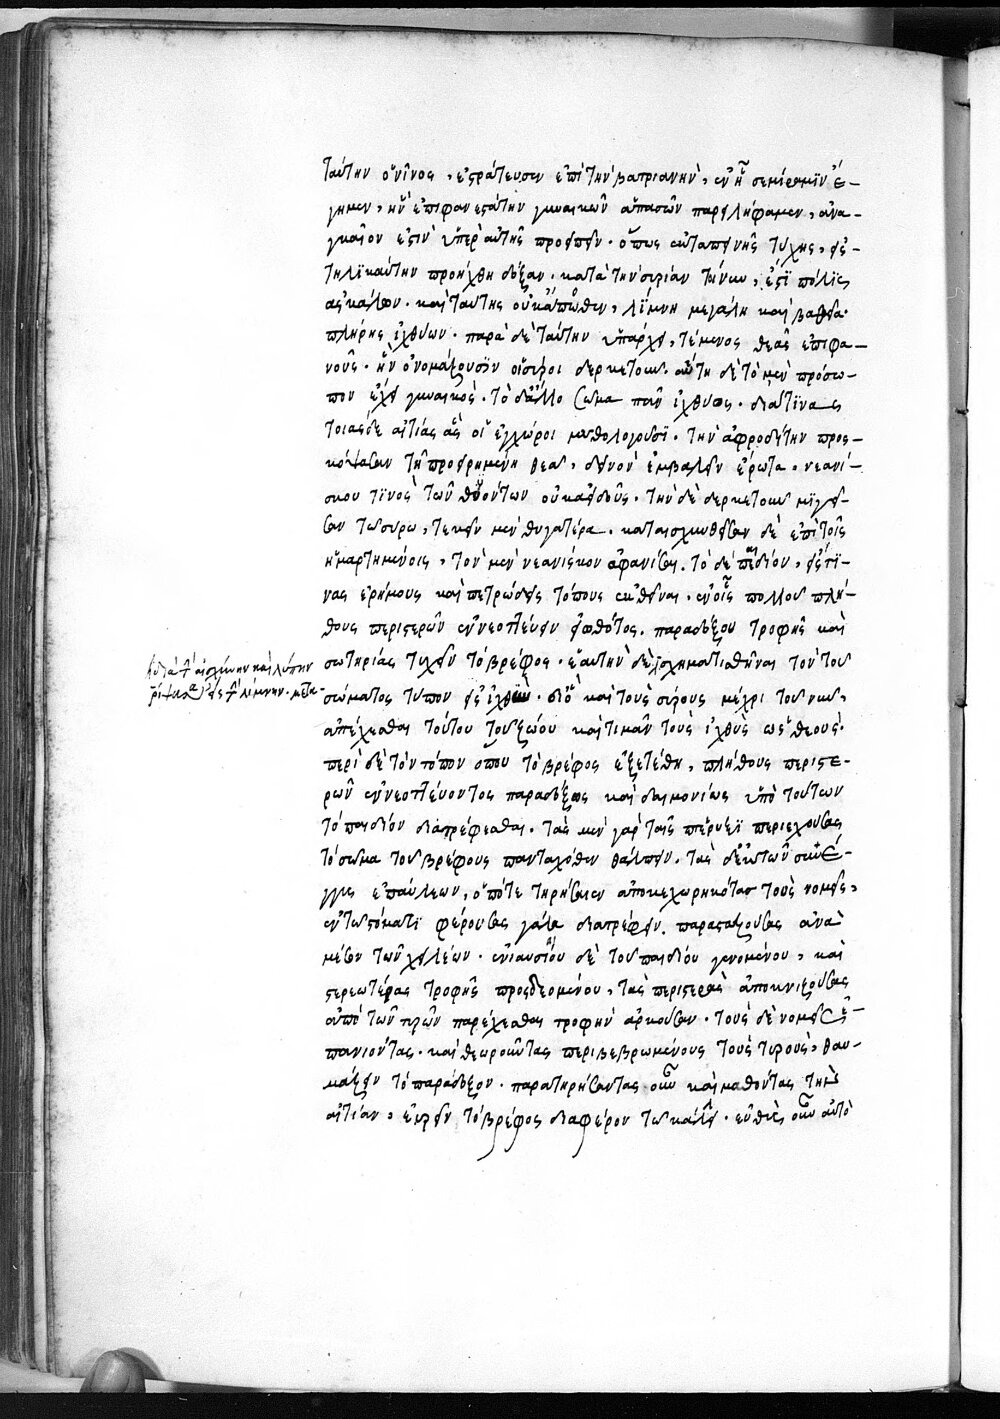 ταύτην ὁ νῖνος, ἐστράτευσεν ἐπὶ τὴν βακτριανὴν, ἐν ᾗ σεμίραμϊν ἔ-
γημεν, ἣν ἐπιφανεστάτην γυναικῶν ἁπασῶν παρειλήφαμεν, ἀνα-
γκαῖον ἐστὶν ὑπὲρ αὐτῆς προειπεῖν. ὅπως ἐκ ταπεινῆς τύχης, εἰς
τηλϊκαύτην προήχθη δόξαν. κατὰ τὴν συρίαν τοίνυν, ἐστϊ πόλϊς
ἀσκάλων. καὶ ταύτης οὐκ ἄπωθεν, λίμνη μεγάλη καὶ βαθεῖα.
πλήρης ἰχθύων. παρὰ δὲ ταύτην ὑπάρχει, τέμενος θεᾶς ἐπιφα-
νοῦς. ἣν ὀνομάζουσϊν οἱ σύροι δερκετοῦν. αὕτη δὲ τὸ μὲν πρόσω-
πον ἔχει γυναικὸς. τὸ δ' ἄλλο σῶμα πᾶν ἰχθύος. διά τϊνας
τοιάσδε αἰτίας ἃς οἱ ἐγχώριοι μυθολογοῦσϊ. τὴν ἀφροδίτην προσ-
κόψασαν τῇ προειρημένῃ θεᾷ, δεινὸν ἐμβαλεῖν ἔρωτα. νεανί-
σκου τϊνὸς τῶν θυόντων οὐκ ἀειδοῦς. τὴν δὲ δερκετοῦν μϊγεῖ-
σαν τῷ σύρῳ, τεκεῖν μὲν θυγατέρα. καταισχυνθεῖσαν δὲ ἐπὶ τοῖς
ἡμαρτημένοις, τὸν μὲν νεανίσκον ἀφανίσαι. τὸ δὲ παιδίον, εἴς τϊ-
νας ἐρήμους καὶ πετρώδεις τόπους ἐκθεῖναι. ἐν οἷς πολλοῦ πλή-
θους περιστερῶν ἐννεοττεύειν εἰωθότος. παραδόξου τροφῆς καὶ
σωτηρίας τυχεῖν τὸ βρέφος. ἑαυτὴν δὲ σχηματισθῆναι τὸν τοῦ
διὰ τὴν αἰσχύνην καὶ λύπην
ῥίψασα εἰς τὴν λίμνην. μετα-
σώματος τύπον εἰς ἰχθὺν. διὸ καὶ τοὺς σύρους μέχρι τοῦ νῦν,
ἀπέχεσθαι τούτου τοῦ ζώου καὶ τιμᾶν τοὺς ἰχθῦς ὡς θεούς.
περὶ δὲ τὸν τόπον ὅπου τὸ βρέφος ἐξετέθη, πλήθους περιστε-
ρῶν ἐννεοττεύοντος παραδόξως καὶ δαιμονίως ὑπὸ τούτων
τὸ παιδίον διατρέφεσθαι. τὰς μὲν γὰρ ταῖς πτέρυξϊ περιεχούσας
τὸ σῶμα τοῦ βρέφους πανταχόθεν θάλπειν. τὰς δ' ἐκ τῶν σύνε-
γγυς ἐπαύλεων, ὁπότε τηρήσαιεν ἀποκεχωρηκότας τοὺς νομεῖς,
ἐν τῷ στόματϊ φερούσας γάλα διατρέφειν. παρασταζούσας ἀνὰ
μέσον τῶν χειλέων. ἐνιαυσίου δὲ τοῦ παιδίου γενομένου, καὶ
στερεωτέρας τροφῆς προσδεομένου, τὰς περιστερὰς ἀποκνιζούσας
ἀπὸ τῶν τυρῶν παρέχεσθαι τροφὴν ἀρκοῦσαν. τοὺς δὲ νομεῖς ἐ-
πανιόντας. καὶ θεωροῦντας περιβεβρωμένους τοὺς τυροὺς, θαυ-
μάζειν τὸ παράδοξον. παρατηρήσαντας οὖν καὶ μαθόντας τὴν
αἰτίαν, εὑρεῖν τὸ βρέφος διαφέρον τῷ κάλλει. εὐθὺς οὖν αὐτὸ